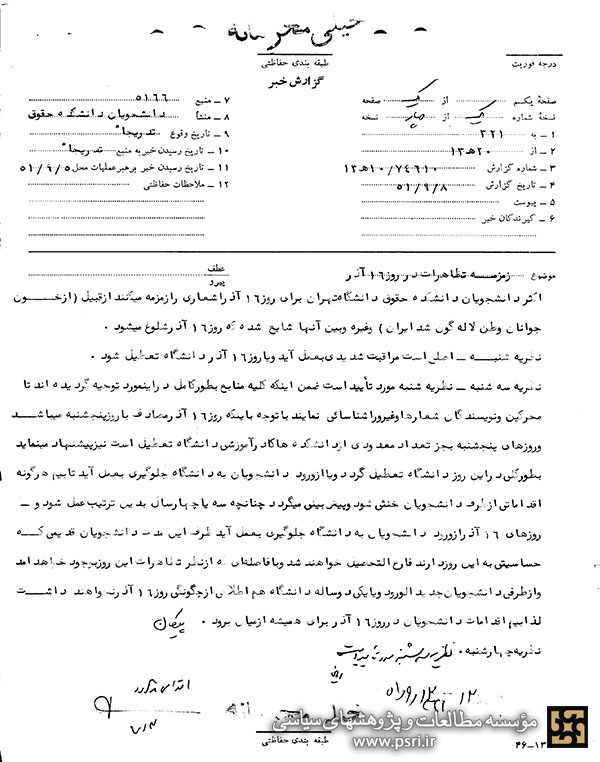 خیلی محرمانه
طبقه بندی حفاظتی
گزارش خبر
درجه فوریت
صفحه یکم از یک صفحه
نسخه شماره یک از چهار نسخه
۱ ــ به ۳۲۱
۲ ــ از ۲۰هـ۱۳
۳ ــ شماره گزارش ۱۰/۷۴۶۱۰هـ۱۳
۴ ــ تاریخ گزارش ۵۱/۹/۸
۵ ــ پیوست
۶ ــ گیرندگان خبر
۷ ــ منبع ۵۱۶۶
۸ ــ منشأ دانشجویان دانشکده حقوق
۹ ــ تاریخ وقوع تدریجاً
۱۰ ــ تاریخ رسیدن خبر به منبع تدریجاً
۱۱ ــ تاریخ رسیدن خبر برهبر عملیات محل ۵۱/۹/۵
۱۲ ــ ملاحظات حفاظتی
موضوع زمزمه تظاهرات در روز ۱۶ آذر
عطف
پیرو
اکثر دانشجویان دانشکده حقوق دانشگاه تهران برای روز ۱۶ آذر اشعاری را زمزمه میکنند از قبیل (از خون
جوانان وطن لاله گون شد ایران) وغیره وبین آنها شایع شده که روز ۱۶ آذر شلوغ میشود .
نظریه شنبه ــ اصلی است مراقبت شدیدی بعمل آید ویا روز ۱۶ آذر دانشگاه تعطیل شود .
نظریه سه شنبه ــ نظریه شنبه مورد تأیید است ضمن اینکه کلیه منابع بطور کامل در اینمورد توجیه گردیده اند تا
محرکین ونویسندگان شعارها وغیره را شناسائی نمایند با توجه باینکه روز ۱۶ آذر مصادف با روز پنجشنبه میباشد
وروزهای پنجشنبه بجز تعداد معدودی از دانشکده ها کادر آموزشی دانشگاه تعطیل است نیز پیشنهاد مینماید
بطور کلی در این روز دانشگاه تعطیل گردد ویا از ورود دانشجویان به دانشگاه جلوگیری بعمل آید تا بیم هرگونه
اقداماتی از طرف دانشجویان خنثی شود وپیش بینی میگردد چنانچه سه یا چهار سال بدین ترتیب عمل شود و ــ
روزهای ۱۶ آذر از ورود دانشجویان به دانشگاه جلوگیری بعمل آید ظرف این مدت دانشجویان قدیمی که
حساسیتی به این روز دارند فارغ التحصیل خواهند شد وبا فاصله ای که از نظر تظاهرات این روز بوجود خواهد آمد
واز طرفی دانشجویان جدید الورود ویا یکی دو ساله دانشگاه هم اطلاعی از چگونگی روز ۱۶ آذر نخواهند داشت
لذا بیم اقدامات دانشجویان در روز ۱۶ آذر برای همیشه از میان برود . پیکان
نظریه چهارشنبه . نظریه سه شنبه مورد تأیید است
طبقه بندی حفاظتی
۴۶-۱۳
مؤسسه مطالعات و پژوهشهای سیاسی
www.psri.ir